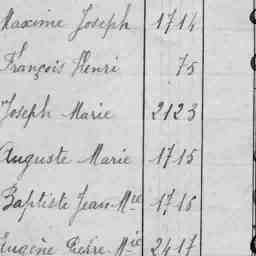 Maxime Joseph 1714
François Henri 75
Joseph Marie 2123
Auguste Marie 1715
Baptiste Jean Mie 1716
Eugène Pierre Mie 2417